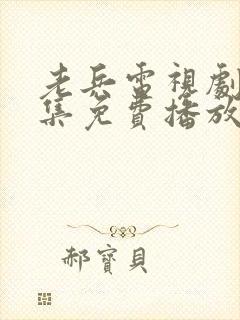 老兵雷視劇
集免費播放
郝寶貝